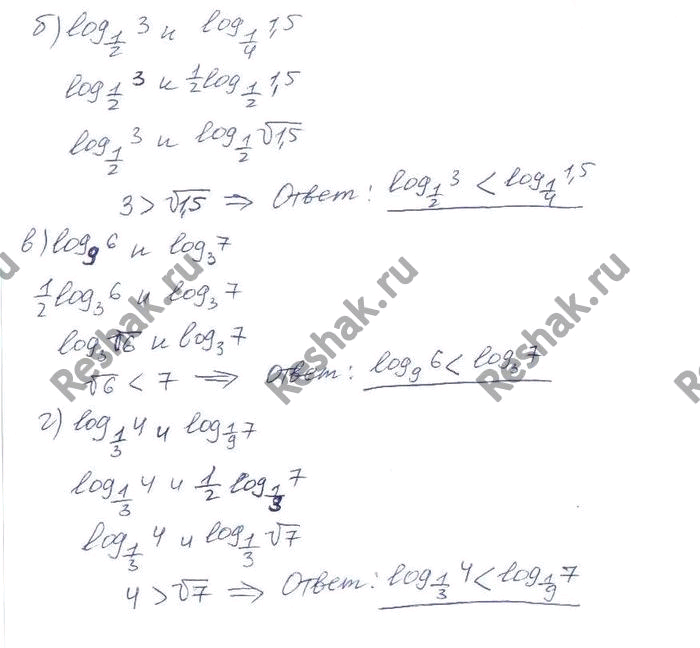 б) log_{1/2} 3 и log_{1/4} 1,5
log_{1/2} 3 и 1/2 log_{1/2} 1,5
log_{1/2} 3 и log_{1/2} √1,5
3 > √1,5 ⇒ Ответ: log_{1/2} 3 < log_{1/4} 1,5
в) log_9 6 и log_3 7
1/2 log_3 6 и log_3 7
log_3 √6 и log_3 7
√6 < 7 ⇒ Ответ: log_9 6 < log_3 7
г) log_{1/3} 4 и log_{1/9} 7
log_{1/3} 4 и 1/2 log_{1/3} 7
log_{1/3} 4 и log_{1/3} √7
4 > √7 ⇒ Ответ: log_{1/3} 4 < log_{1/9} 7
Reshak.ru
Reshak.ru
Reshak.ru